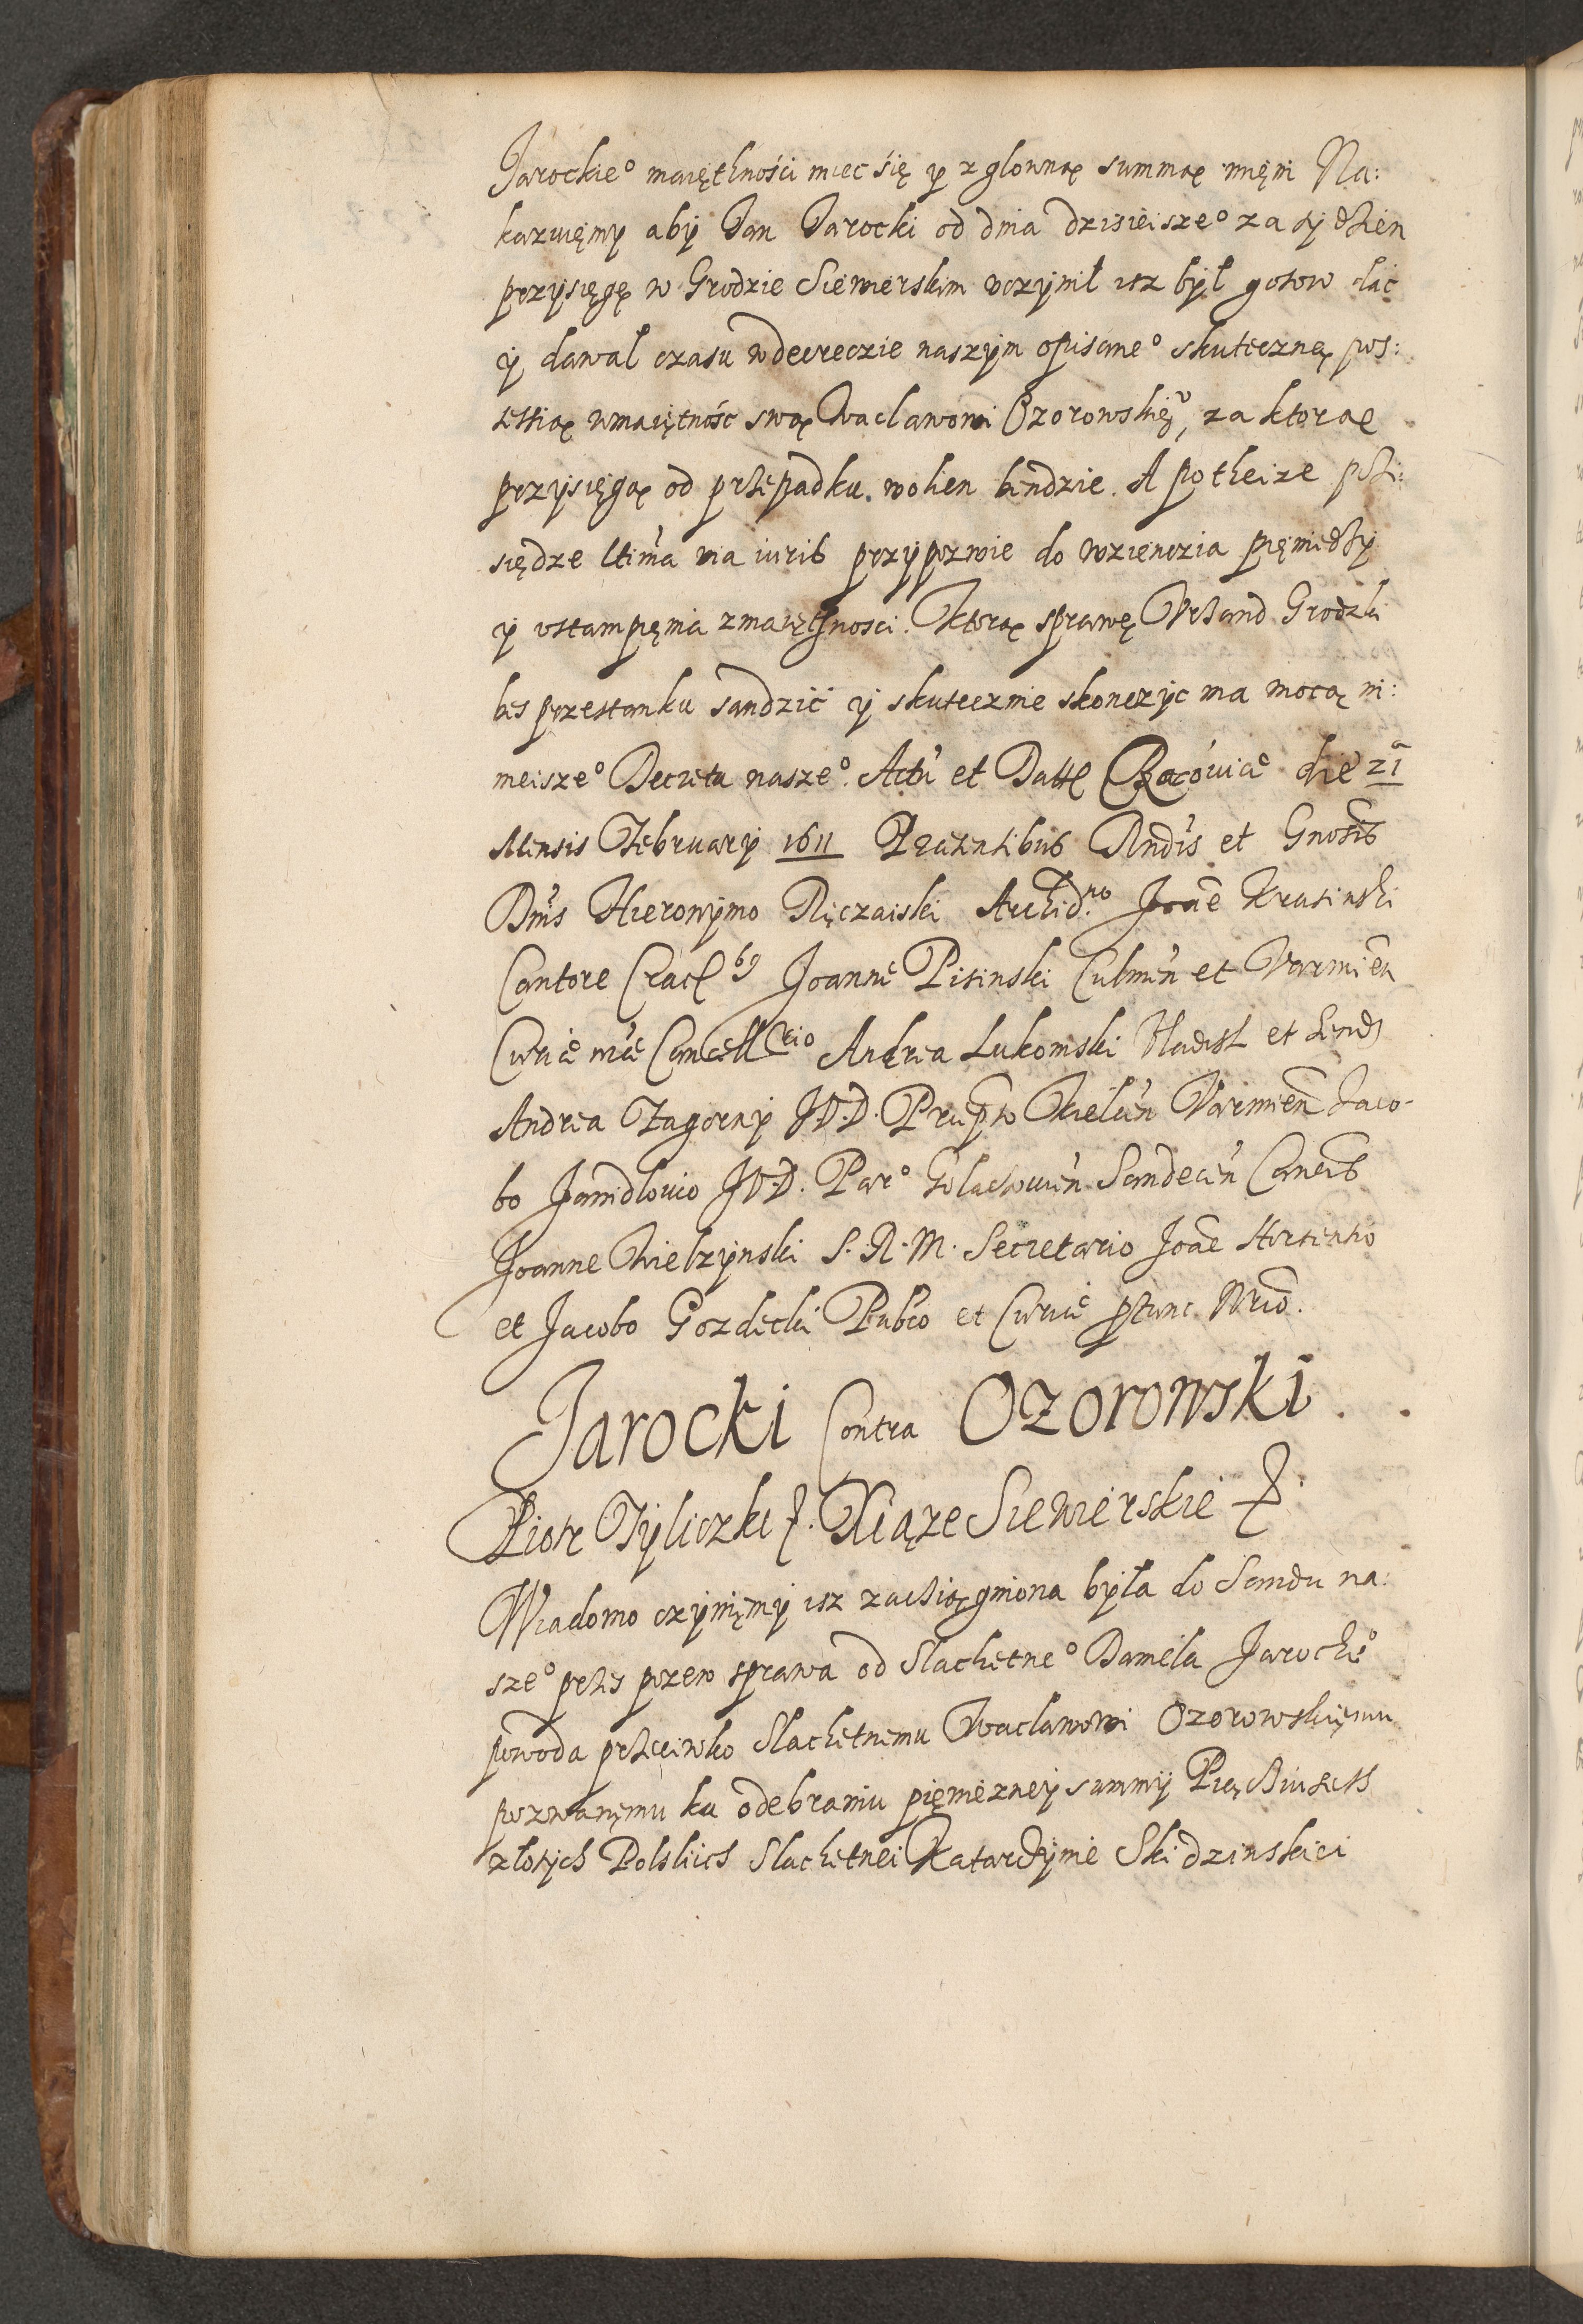 Jarockie° maiętności miec się y z glowną summą mięni Na:
kazuięmy aby Pan Jarocki od dnia dzisieisze° za tydzien
przysięgę w Grodzie Siewierskim uczynił isz był gotow dac
y dawal czasu w decreczie naszym opisane° skuteczną pos:
sessią w maiętnosc swą Waclawowi Ozorowskiēͧ, za ktorae
przysięgą od przepadku wolien bendzie. A po theize przi:
siędze ltima via iuris przypozwie do wzienczia pięniedzy
y ustampięnia z maiętnosci. Ktorą sprawę Urzand Grodzki
bes przestanku sandzić y skutecznie skonczyc ma mocą ni:
nieisze° Decretu nasze°. Actu et Datt Cracoviae die 21ā
Mensis February 1611 Praesentibus Rndis et Gnosis
Dnis Hieronymo Ręczaiski Archid.no Joāe Krasinski
Cantore Crac bg Joanne Pisinski Culmen et Varmien
Curiae nrae Cancellrio Andrea Lukomski Vladisl et Lend
Andrea Zagorny J.V.D. Praepto Kielcen Varmien Jaco-
bo Janidlovio J.V.D. Par° Golaczovien Sandecen Cancis
Joanne Wielzynski S.R.M. Secretario Joāe Hortensio
et Jacobo Gozdecki Pubco et Curiae ptunc Nrio.
Jarocki Contra Ozorowski.
Piotr Tyliczki z. Xiąze Siewierskie z.
Wiadomo czynięmy isz zacziągniona była do Sandu na:
sze° przes pozew sprawa od Slachetne° Daniela Jarockie°
powoda przeciwko Slachetnemu Waclawowi Ozorowskięmu
pozwanęmu ku odebraniu pięnieznej summy Pięcziuseth
złotych Polskich Slachetnei Katarzynie Skidzinskiei